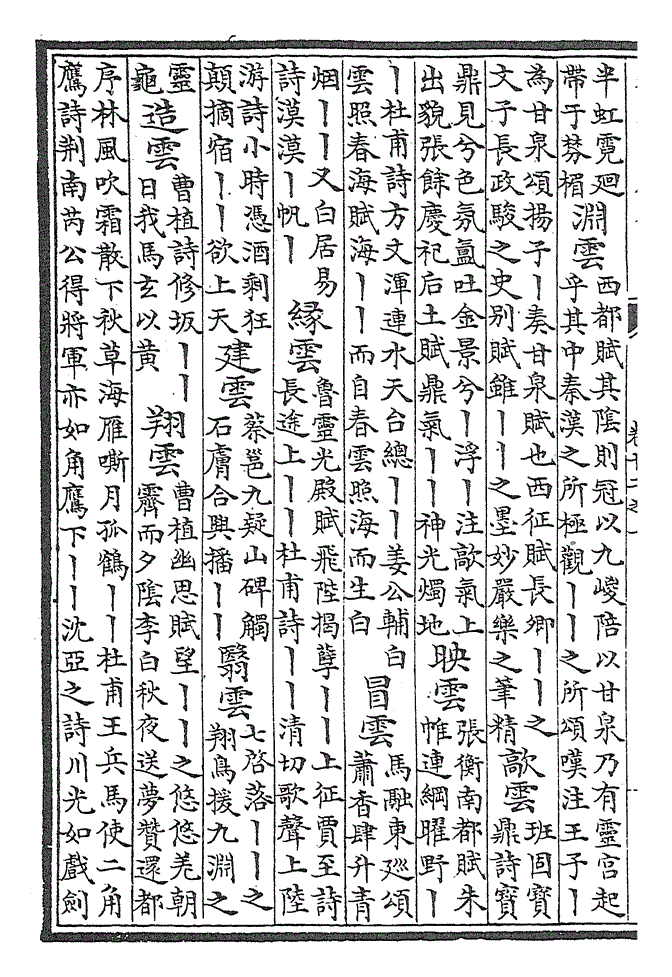 半虹霓廻
帶于棼楣
淵雲
西都賦其陰則冠以九嵕陪以甘泉乃有靈宮起
乎其中秦漢之所極觀丨丨之所頌嘆注王子丨
為甘泉頌揚子丨奏甘泉賦也西征賦長卿丨丨之
文子長政駿之史别賦雖丨丨之墨妙嚴樂之筆精
歊雲
班固寳
鼎詩寳
鼎見兮色氛氲吐金景兮丨浮丨注歊氣上
出貌張餘慶祀后土賦鼎氣丨丨神光燭地
映雲
張衡南都賦朱
帷連綱曜野丨
丨杜甫詩方丈渾連水天台總丨丨姜公輔白
雲照春海賦海丨丨而自春雲照海而生白
冒雲
馬融東廵頌
蕭香肆升青
烟丨丨又白居易
詩漠漠丨帆丨
縁雲
魯靈光殿賦飛陛揭孽丨丨上征賈至詩
長途上丨丨杜甫詩丨丨清切歌聲上陸
游詩小時憑酒剩狂
顛摘宿丨丨欲上天
建雲
蔡邕九疑山碑觸
石膚合興播丨丨
翳雲
七啓落丨丨之
翔鳥援九淵之
靈
龜
造雲
曹植詩修坂丨丨
日我馬玄以黄
翔雲
曹植幽思賦望丨丨之悠悠羌朝
霽而夕陰李白秋夜送夢贊還都
序林風吹霜散下秋草海雁嘶月孤鶴丨丨杜甫王兵馬使二角
鷹詩荆南芮公得將軍亦如角鷹下丨丨沈亞之詩川光如戲劍